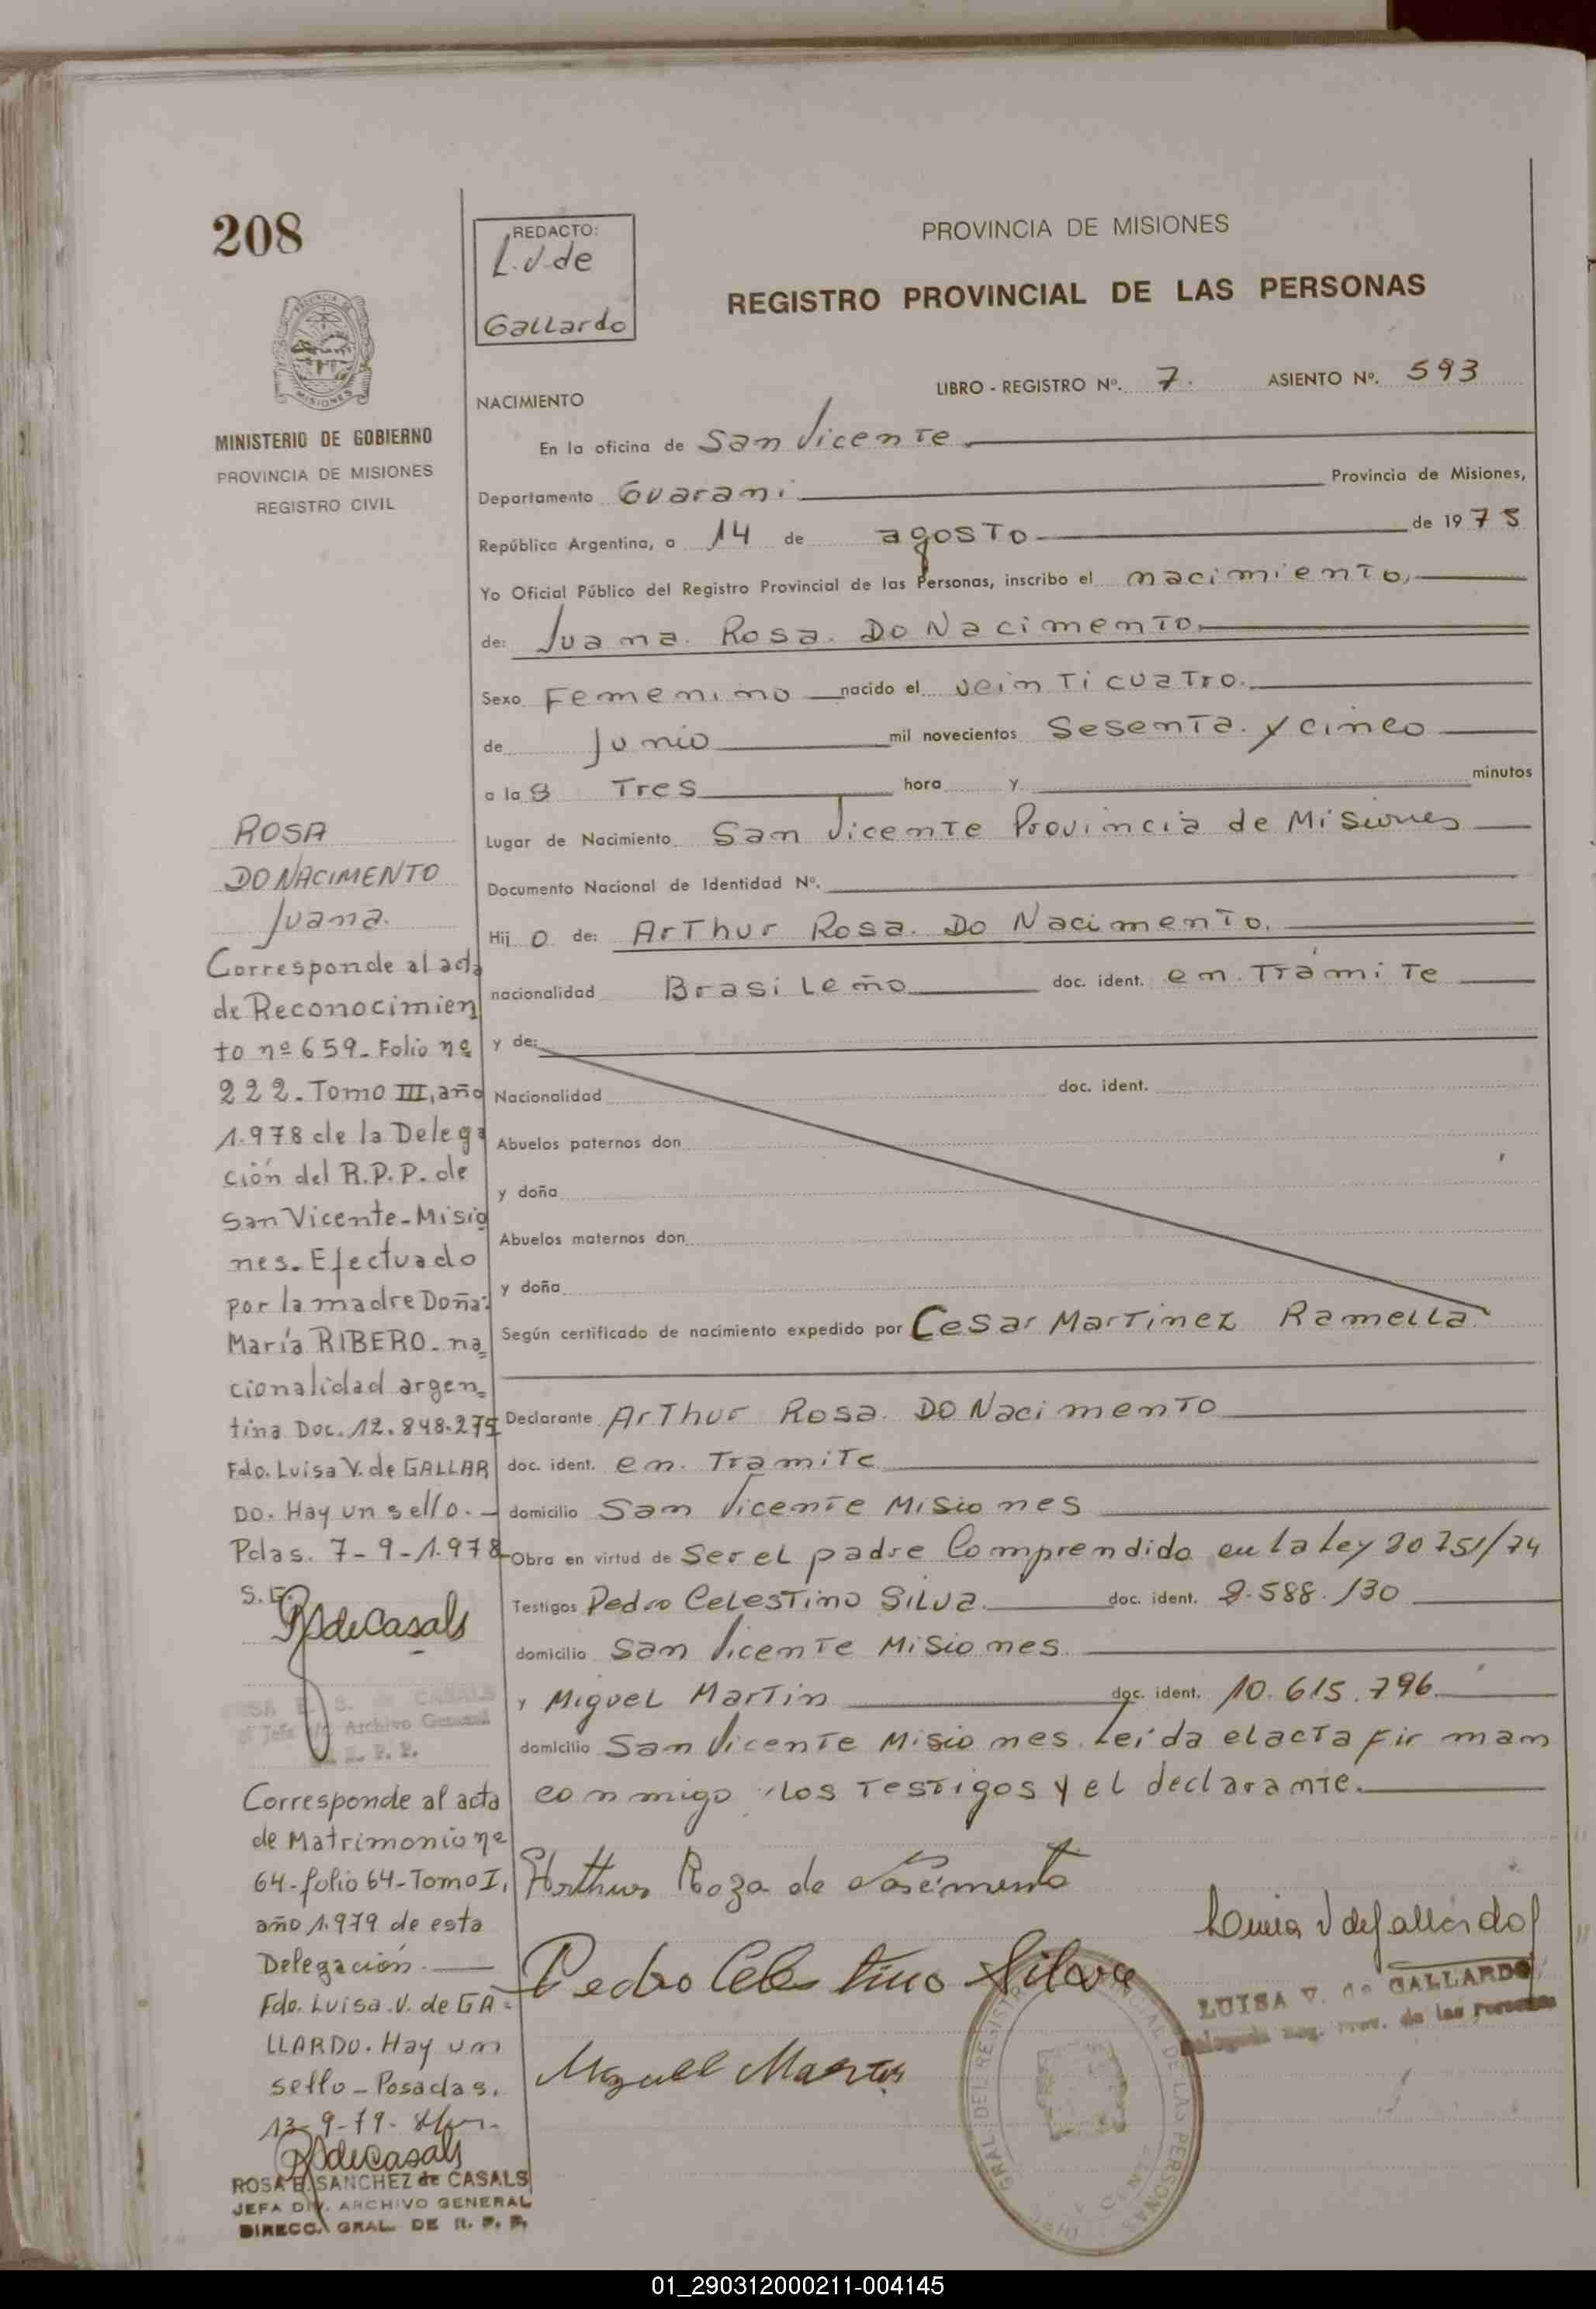 208
REDACTO:
L.V. de
Gallardo
PROVINCIA DE MISIONES
REGISTRO PROVINCIAL DE LAS PERSONAS
MINISTERIO DE GOBIERNO
PROVINCIA DE MISIONES
REGISTRO CIVIL
LIBRO - REGISTRO Nº. 7. ASIENTO Nº. 593
NACIMIENTO
En la oficina de San Vicente
Departamento Guarani Provincia de Misiones,
República Argentina, a 14 de agosto de 1975
Yo Oficial Público del Registro Provincial de las Personas, inscribo el nacimiento,
de: Juana. Rosa. Do Nacimento.
Sexo Femenino nacido el veinticuatro.
de Junio mil novecientos Sesenta. y cinco
a las Tres hora y minutos
Lugar de Nacimiento San Vicente Provincia de Misiones
Documento Nacional de Identidad Nº.
Hij o de: Arthur Rosa. Do Nacimento.
nacionalidad Brasileño doc. ident. en. Trámite
y de:
Nacionalidad doc. ident.
Abuelos paternos don
y doña
Abuelos maternos don
y doña
Según certificado de nacimiento expedido por Cesar Martinez Ramella.
Declarante Arthur Rosa. DO Nacimento
doc. ident. en. Tramite
domicilio San Vicente Misiones
Obra en virtud de Ser el padre Comprendido en la Ley 20751/74
Testigos Pedro Celestino Silva. doc. ident. 8.588.130
domicilio San Vicente Misiones.
y Miguel Martin doc. ident. 10.615.796.
domicilio San Vicente Misiones. Leída el acta firman
conmigo, los testigos y el declarante.
Arthur Roza do Nascimento
Pedro Celestino Silva
Miguel Martin
Luisa V de Gallardo
LUISA V. de GALLARDO
Delegada Reg. Prov. de las Personas
ROSA
DO NACIMENTO
Juana.
Corresponde al acta
de Reconocimien
to nº 659. Folio nº
222. Tomo III, año
1.978 de la Delega
ción del R.P.P. de
San Vicente-Misio
nes. Efectuado
por la madre Doña:
María RIBERO. na=
cionalidad argen=
tina Doc. 12.848.275
Fdo. Luisa V. de GALLAR
DO. Hay un sello. -
Pdas. 7-9-1.978
S.E.
RSdeCasals
S. de CASALS
Jefa Archivo General
R. P. P.
Corresponde al acta
de Matrimonio nº
64-folio 64-Tomo I,
año 1.979 de esta
Delegación.
Fdo. Luisa.V. de GA=
LLARDO. Hay un
sello - Posadas.
13-9-79-
RSdeCasals
ROSA E. SANCHEZ de CASALS
JEFA DIV. ARCHIVO GENERAL
DIRECC. GRAL. DE R. P. P.
01_290312000211-004145